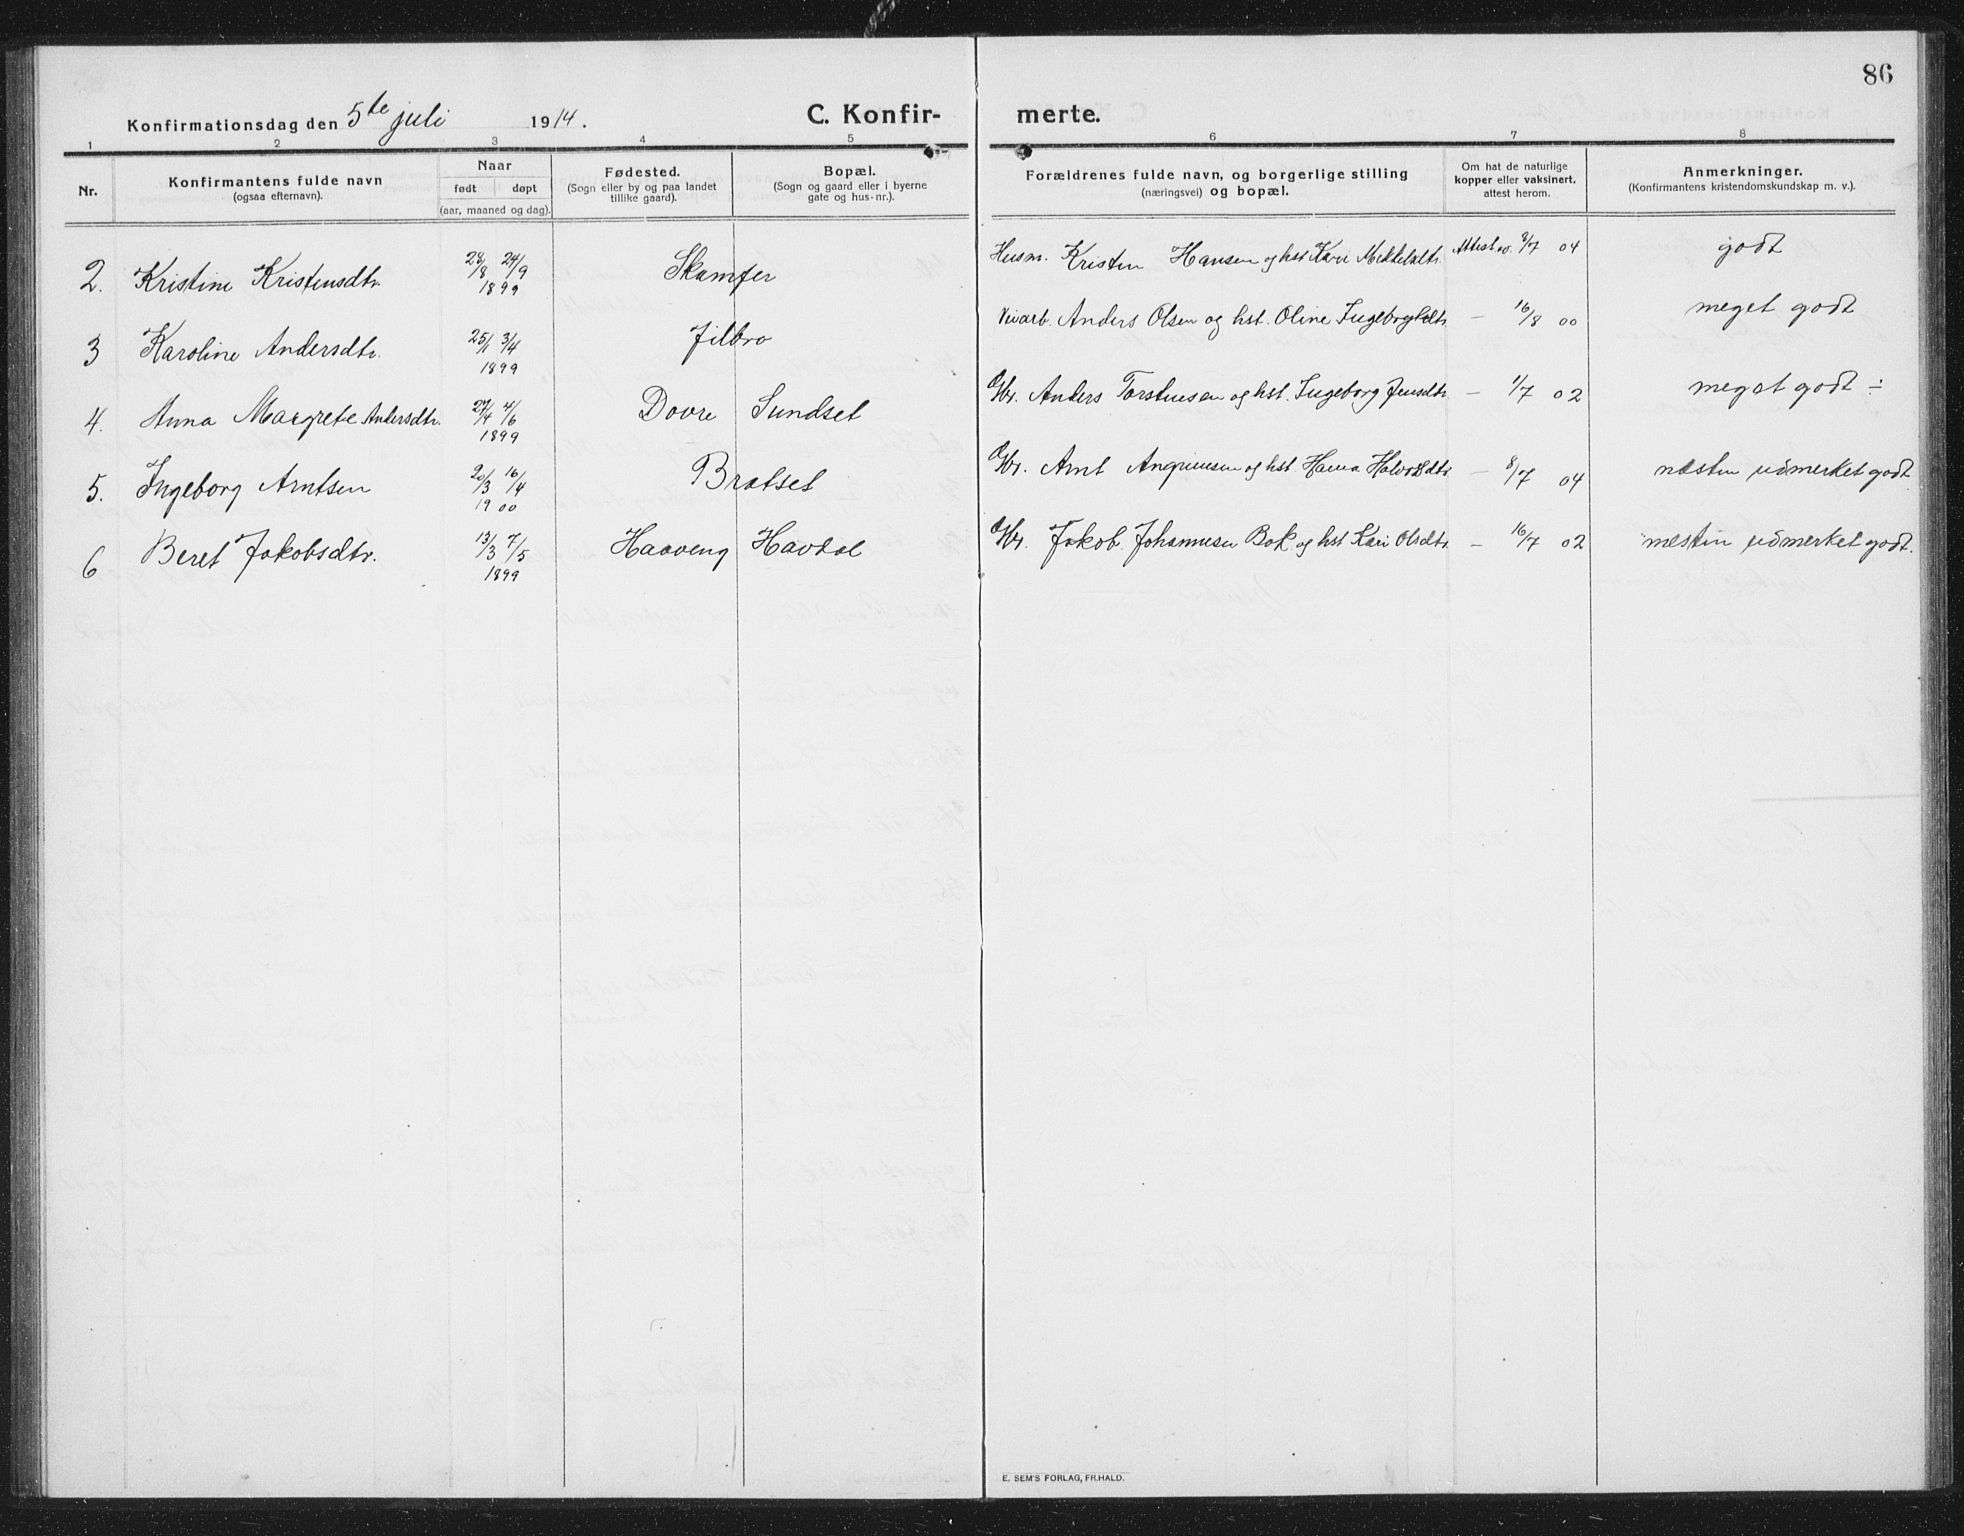 86
Konfirmationsdag den 5te juli 1914.
C. Konfirmerte.
1 2 3 4 5 6 7 8
Nr.
Konfirmantens fulde navn
(ogsaa efternavn).
Naar
født døpt
(aar, maaned og dag).
Fødested.
(Sogn eller by og paa landet
tillike gaard).
Bopæl.
(Sogn og gaard eller i byerne
gate og hus-nr.).
Forældrenes fulde navn, og borgerlige stilling
(næringsvei) og bopæl.
Om hat de naturlige
kopper eller vaksinert,
attest herom.
Anmerkninger.
(Konfirmantens kristendomskundskap m. v.).
2. Kristine Kristensdtr. 28/8 24/9 1899 Skamfer Husm. Kristen Hansen og hst. Kari Mikkelsdtr. Attest av 8/7 04 godt
3 Karoline Andersdtr. 25/1 3/4 1899 Jilbro Veiarb. Anders Olsen og hst. Oline Ingebrgtsdtr. — 16/8 00 meget godt
4. Anna Margrete Andersdtr. 27/4 4/6 1899 Dovre Sundset Gbr. Anders Torstensen og hst. Ingeborg Jensdtr. — 1/7 02 meget godt ÷
5. Ingeborg Arntsen 20/3 16/4 1900 Bratset Gbr. Arnt Angrimsen og hst Halvorsdtr — 8/7 04 næsten udmerket godt
6 Beret Jakobsdtr. 13/3 7/5 1899 Haaveng Havdal Gbr. Jakob Johannesen Bak. og hst Kari Olsdtr. — 16/7 02 næsten udmerket godt.
E. SEM'S FORLAG, FR.HALD.